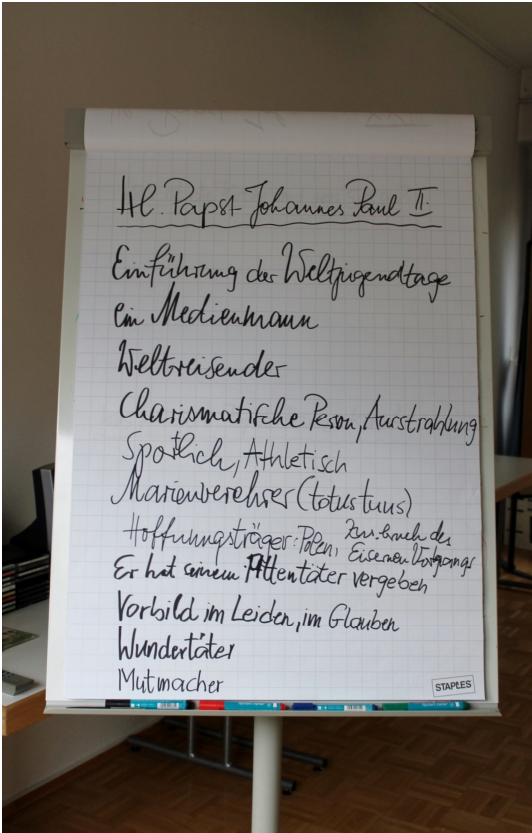 Hl. Papst Johannes Paul II.
Einführung der Weltjugendtage
ein Medienmann
Weltreisender
Charismatische Person, Ausstrahlung
Sportlich, Athletisch
Marienverehrer (totus tuus)
Hoffnungsträger: Polen,
des
Eisernen Vorhangs
Er hat seinem Attentäter vergeben
Vorbild im Leiden, im Glauben
Wundertäter
Mutmacher
STAPLES